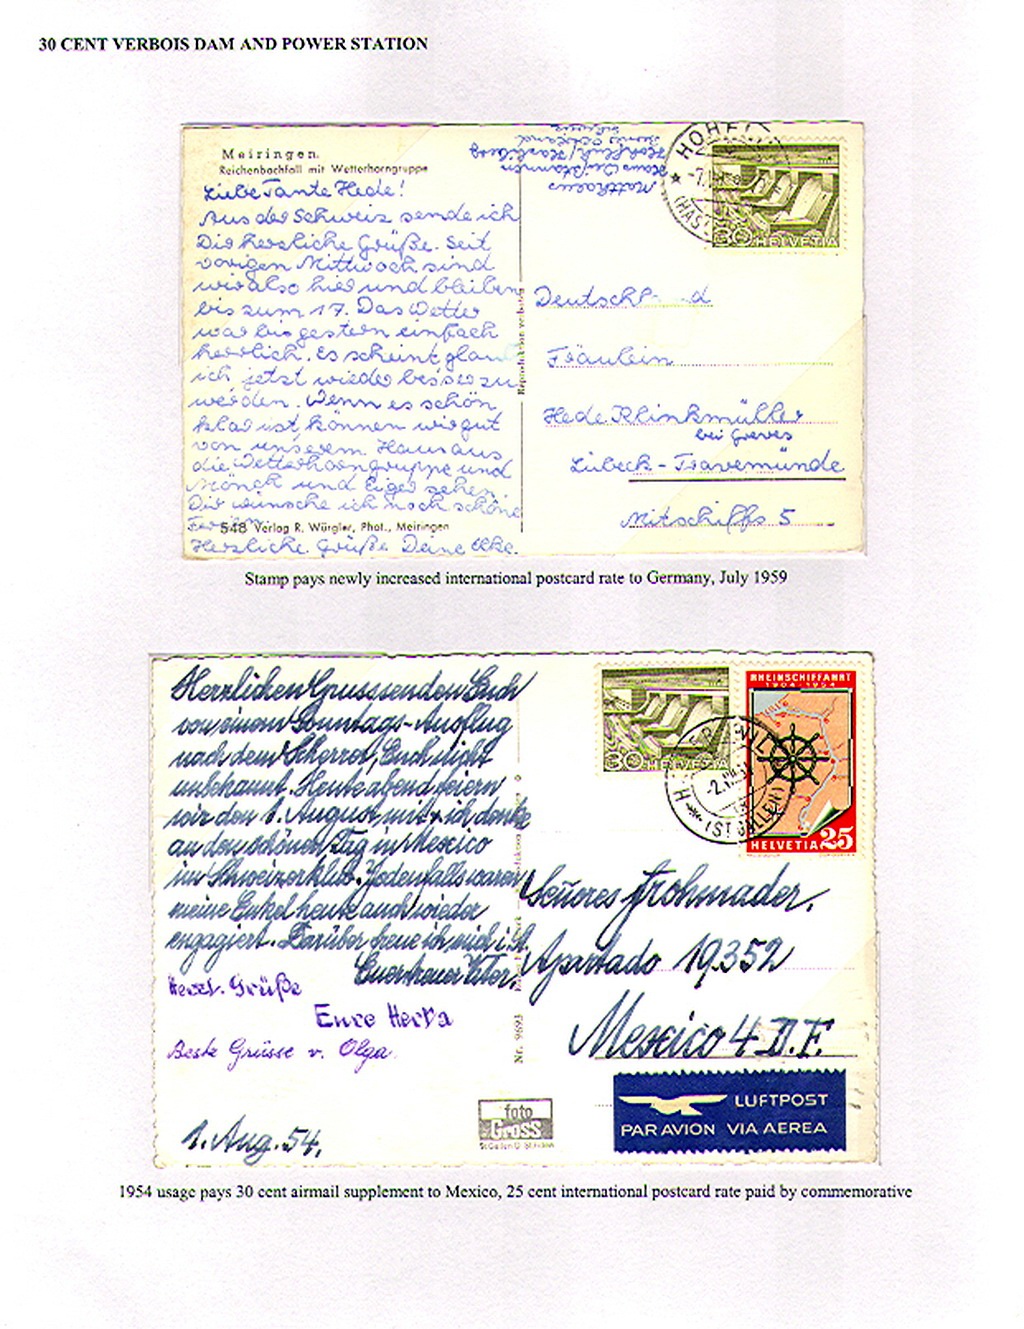 30 CENT VERBOIS DAM AND POWER STATION
Meiringen.
Reichenbachfall mit Wetterhorngruppe
Liebe Tante Hede!
Aus der Schweiz sende ich
Dir herzliche Grüße. Seit
vorigen Mittwoch sind
wir also hier und bleiben
bis zum 17. Das Wetter
war bis gestern einfach
herrlich. Es scheint glaub
ich jetzt wieder besser zu
werden. Wenn es schön
klar ist, können wir gut
von unserem Haus aus
die Wetterhorngruppe und
Mönch und Eiger sehen.
Dir wünsche ich noch schöne
548 Verlag R. Würgler, Phot., Meiringen
Herzliche Grüße Deine Elke.
HOHFL
30 HELVETIA
Deutschl nd
Fräulein
Hede Klinkmüller
bei Greves
Lübeck - Travemünde
Mitschiffs 5
Stamp pays newly increased international postcard rate to Germany, July 1959
Herzlichen Gruss senden Euch
von einem Sonntags-Ausflug
nach dem Scherrer, Euch nicht
unbekannt. Heute abend feiern
wir den 1. August mit & ich denke
an den schönen Tag in Mexico
im Schweizerklub. Jedenfalls waren
meine Enkel heute auch wieder
engagiert. Darüber freue ich mich i. St.
Euer treuer Vater.
Herzl. Grüße
Eure Herta
Beste Grüsse v. Olga.
1. Aug. 54.
30 HELVETIA
RHEINSCHIFFAHRT
1904-1954
HELVETIA 25
(ST. GALLEN)
Señores Frohmader.
Apartado 19352
Mexico 4 D.F.
Nr. 9693
foto
Gross
LUFTPOST
PAR AVION VIA AEREA
1954 usage pays 30 cent airmail supplement to Mexico, 25 cent international postcard rate paid by commemorative